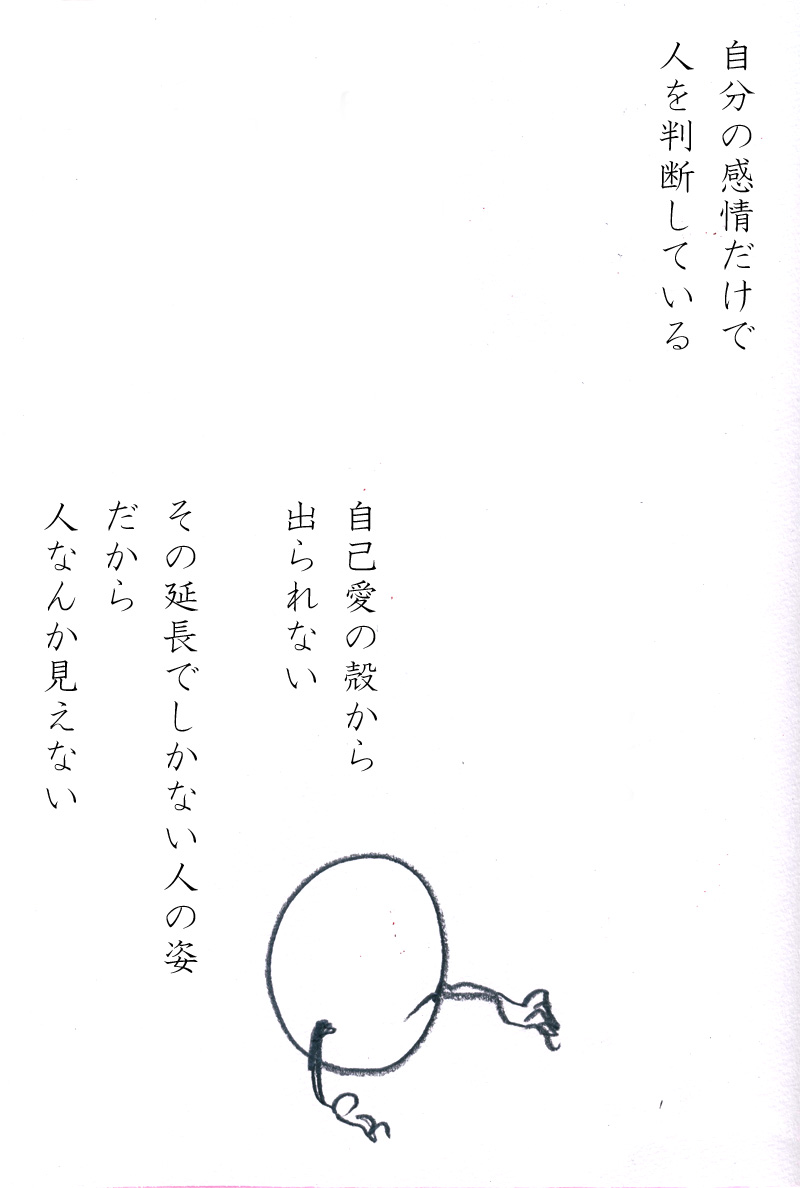 自分の感情だけで
人を判断している
自己愛の殻から
出られない
その延長でしかない人の姿
だから
人なんか見えない